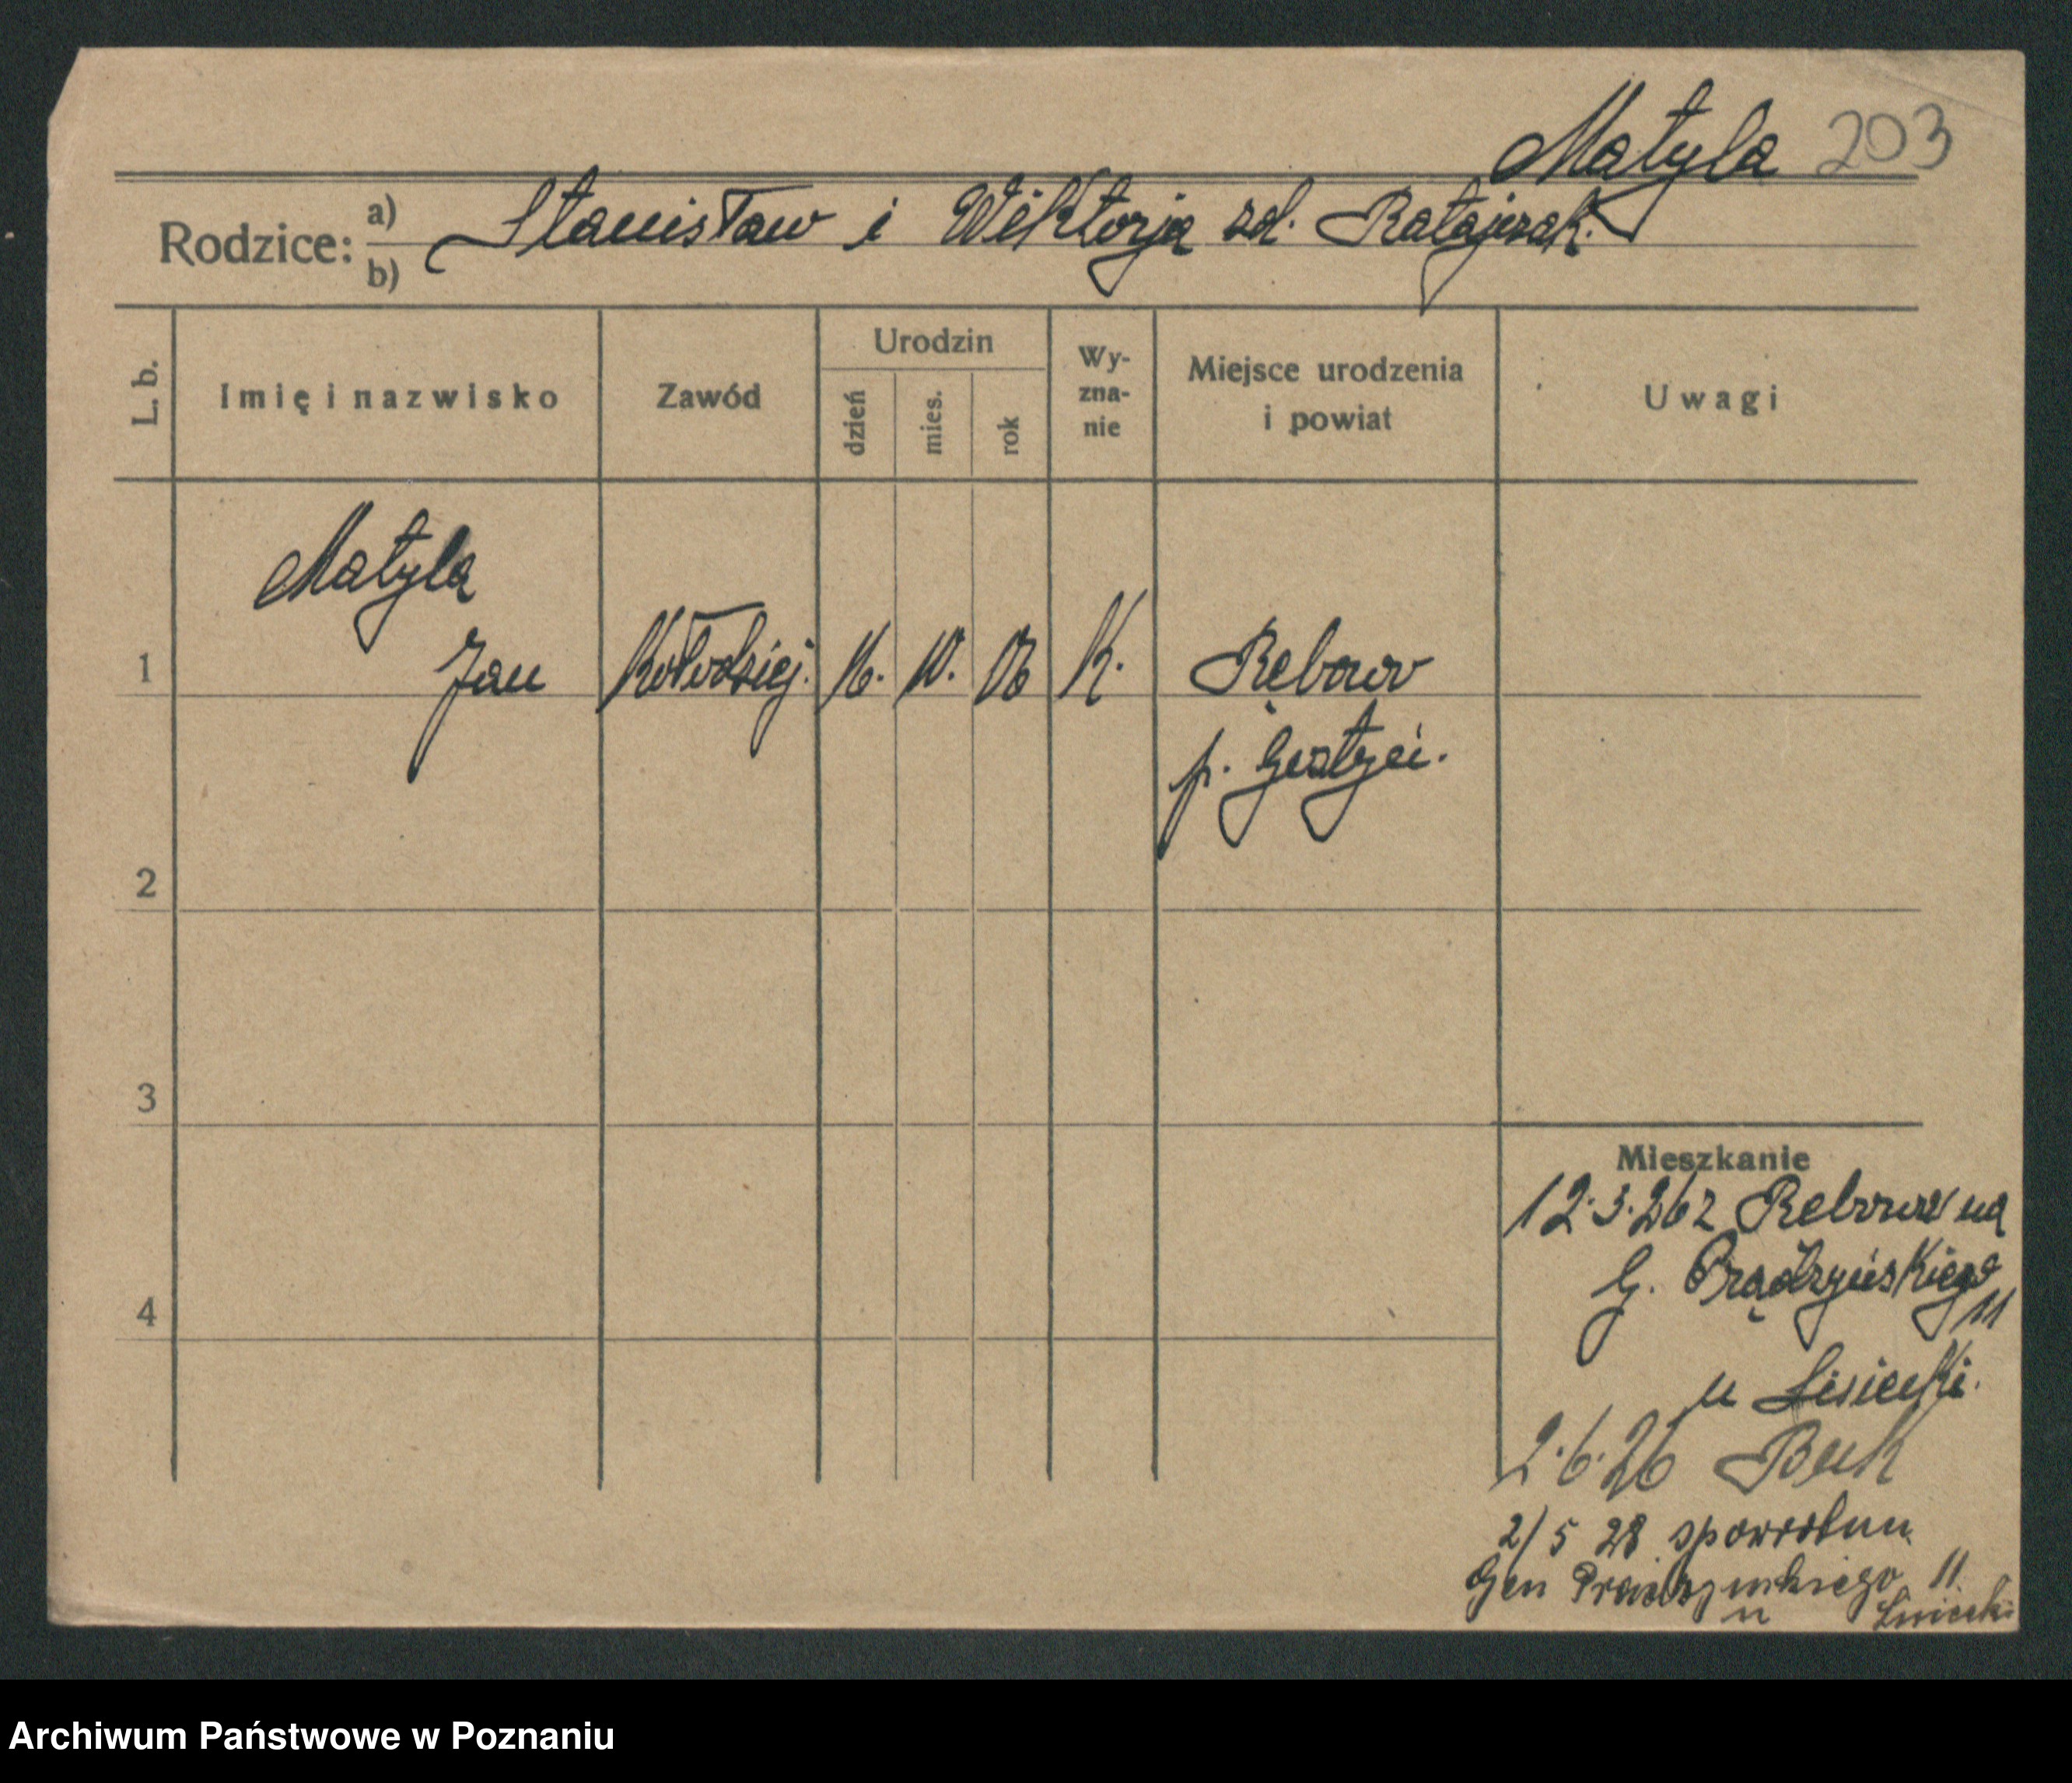 Matyla 203
Rodzice: a) Stanisław i Wiktorja zd. Ratajczak.
b)
L. b.
Imię i nazwisko
Zawód
Urodzin
dzień
mies.
rok
Wy-
zna-
nie
Miejsce urodzenia
i powiat
Uwagi
Matyla
1 Jan Kołodziej. 16. 10. 06 K. Rębowo
p. Gostyń.
2
3
4
Mieszkanie
12.3.26 z Rębowa na
G. Prądzyńskiego
11
u Lisiecki.
2.6.26 Buk
2/5 28 spowrotem
Gen Prądzynskiego 11
u Lisiecki
Archiwum Państwowe w Poznaniu